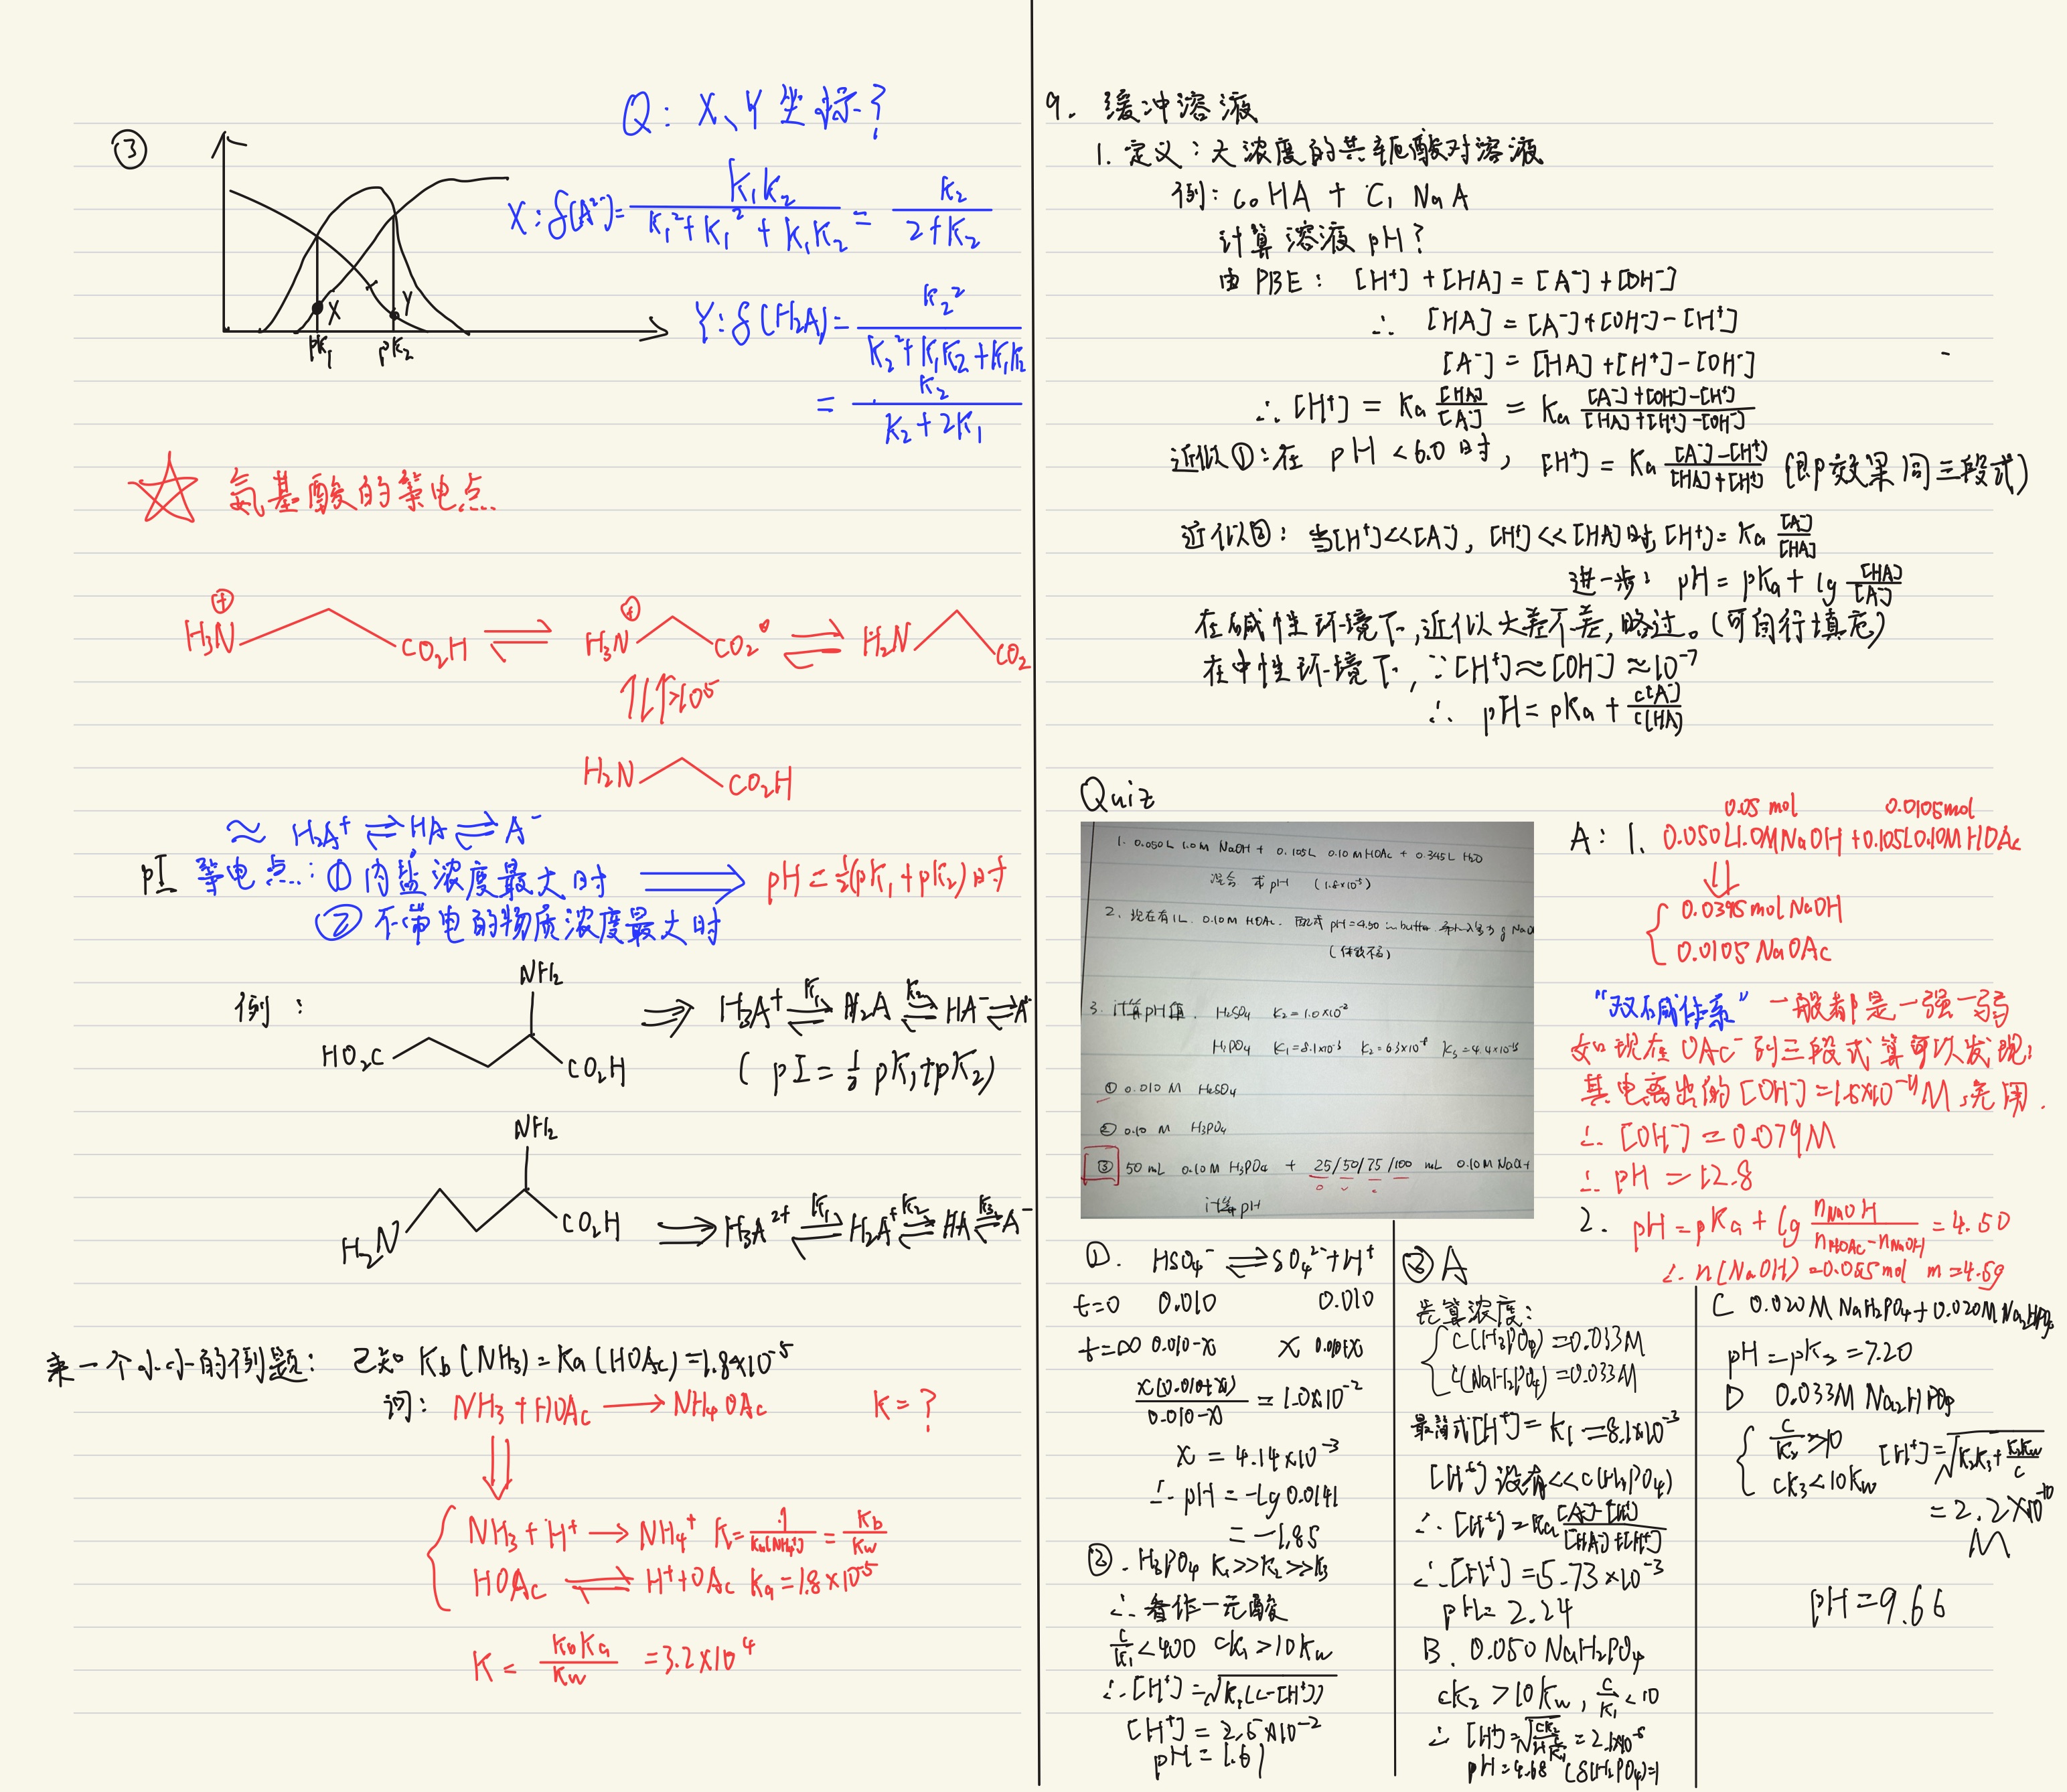 ③
Q: X、Y坐标?
X: δ(A²⁻) = K₁K₂ / (K₁² + K₁² + K₁K₂) = K₂ / (2+K₂)
Y: δ(H₂A) = K₂² / (K₂² + K₁K₂ + K₁K₂)
= K₂ / (K₂ + 2K₁)
X Y
pK₁ pK₂
☆ 氨基酸的等电点
H₃N⊕ CO₂H ⇌ H₃N⊕ CO₂ ⇌ H₂N CO₂
⇅ >10⁵
H₂N CO₂H
≈ H₂A⁺ ⇌ HA ⇌ A⁻
pI 等电点: ① 内盐浓度最大时 ⟹ pH = ½(pK₁ + pK₂) 时
② 不带电的物质浓度最大时
例:
NH₂
HO₂C CO₂H
⟹ H₃A⁺ ⇌(K₁) H₂A ⇌(K₂) HA⁻ ⇌ A
( pI = ½ pK₁+pK₂)
NH₂
H₂N CO₂H
⟹ H₃A²⁺ ⇌(K₁) H₂A⁺ ⇌(K₂) HA ⇌(K₃) A⁻
来一个小小的例题: 已知 Kb(NH₃) = Ka(HOAc) = 1.8×10⁻⁵
问: NH₃ + HOAc ⟶ NH₄OAc K = ?
NH₃ + H⁺ ⟶ NH₄⁺ K = 1/Ka(NH₄⁺) = Kb/Kw
HOAc ⇌ H⁺+OAc Ka = 1.8×10⁻⁵
K = KbKa/Kw = 3.2×10⁴
9. 缓冲溶液
1. 定义: 大浓度的共轭酸对溶液
例: C₀ HA + C₁ NaA
计算溶液 pH?
由 PBE: [H⁺] + [HA] = [A⁻] + [OH⁻]
∴ [HA] = [A⁻] + [OH⁻] - [H⁺]
[A⁻] = [HA] + [H⁺] - [OH⁻]
∴ [H⁺] = Ka [HA]/[A⁻] = Ka ([A⁻]+[OH⁻]-[H⁺])/([HA]+[H⁺]-[OH⁻])
近似①: 在 pH < 6.0 时, [H⁺] = Ka ([A⁻]-[H⁺])/([HA]+[H⁺]) (即P效果同三段式)
近似②: 当[H⁺]<<[A⁻], [H⁺]<<[HA]时, [H⁺] = Ka [A⁻]/[HA]
进一步: pH = pKa + lg [HA]/[A⁻]
在碱性环境下,近似大差不差,略过。(可自行填充)
在中性环境下, ∵ [H⁺] ≈ [OH⁻] ≈ 10⁻⁷
∴ pH = pKa + c(A⁻)/c(HA)
Quiz
1. 0.050L 1.0M NaOH + 0.105L 0.10M HOAc + 0.345L H₂O
混合 求pH (1.8×10⁻⁵)
2. 现在有1L 0.10M HOAc. 配成 pH=4.50 buffer 加入多少g NaO
(体积不变)
3. 计算pH值. H₂SO₄ K₂=1.0×10⁻²
H₃PO₄ K₁=8.1×10⁻³ K₂=6.3×10⁻⁸ K₃=4.4×10⁻¹³
① 0.010 M H₂SO₄
② 0.10 M H₃PO₄
③ 50 mL 0.10M H₃PO₄ + 25/50/75/100 mL 0.10M NaOH
计算pH
0.05 mol 0.0105mol
A: 1. 0.050L1.0M NaOH + 0.105L0.10M HOAc
0.0395 mol NaOH
0.0105 NaOAc
"双碱体系" 一般都是一强一弱
如现在OAc⁻列三段式算可以发现:
其电离出的[OH⁻]=1.5×10⁻⁴M,无用.
∴ [OH⁻] = 0.079M
∴ pH = 12.8
2. pH = pKa + lg nNaOH/(nHOAc-nNaOH) = 4.50
∴ n(NaOH)=0.055mol m=4.5g
①. HSO₄⁻ ⇌ SO₄²⁻+H⁺
t=0 0.010 0.010
t=∞ 0.010-x x 0.010+x
x(0.010+x)/(0.010-x) = 1.0×10⁻²
x = 4.14×10⁻³
∴ pH = -lg 0.0141
= -1.85
②. H₃PO₄ K₁>>K₂>>K₃
∴ 看作一元酸
c/K₁<400 cK₁>10Kw
∴ [H⁺] = √K₁(c-[H⁺])
[H⁺] = 2.5×10⁻²
pH = 1.61
③ A
先算浓度:
c(H₃PO₄)=0.033M
c(NaH₂PO₄)=0.033M
最简式[H⁺] = K₁ = 8.1×10⁻³
[H⁺]没有<<c(H₃PO₄)
∴ [H⁺] = Ka ([A⁻]-[H⁺])/([HA]+[H⁺])
∴ [H⁺] = 5.73×10⁻³
pH = 2.24
B. 0.050 NaH₂PO₄
cK₂ > 10Kw, c/K₁ < 10
pH=4.68 (δ(H₂PO₄)=1
C 0.020M NaH₂PO₄+0.020M Na₂HPO₄
pH = pK₂ = 7.20
D 0.033M Na₂HPO₄
c/K₂>10
cK₃<10Kw [H⁺]=√K₂K₃+K₂Kw/c
= 2.2×10⁻¹⁰
M
pH = 9.66